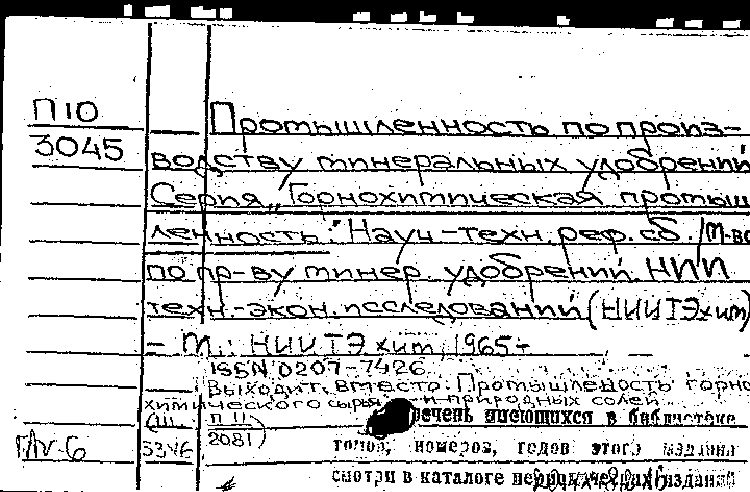 П10
3045
Промышленность по произ-
водству минеральных удобрений
Серия „Горнохимическая промыш
ленность": Науч-техн. реф. сб. /М-во
по пр-ву минер. удобрений. НИИ
техн.-экон. исследований (НИИТЭхим)
- М.: НИИТЭхим, 1965-
ISSN 0207-7426
Выходит вместо: Промышленость горно
химического сырья и природных солей
(Ш П II
2081)
5346
речень имеющихся в библиотеке
томов, номеров, годов этого издания
смотри в каталоге периодических изданий